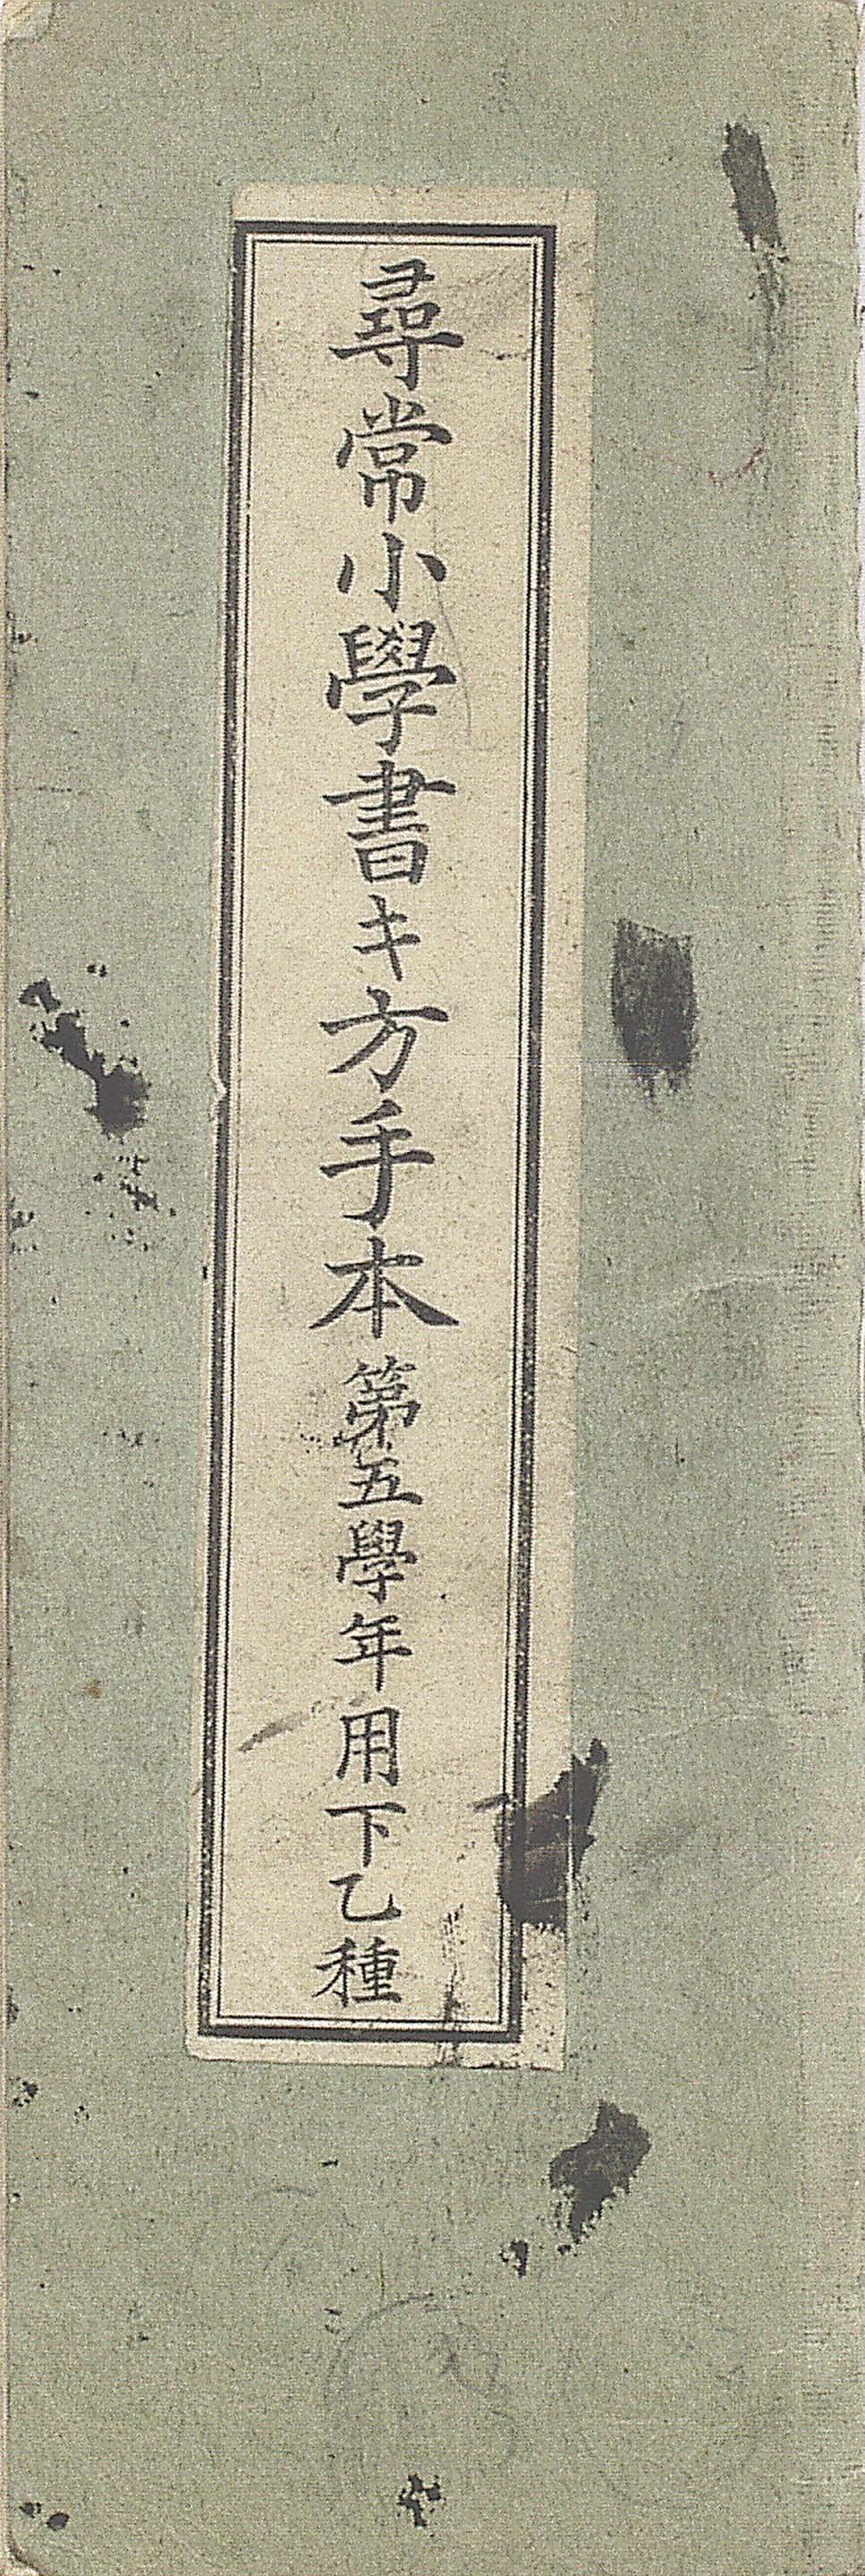 尋常小學書キ方手本第五學年用下乙種